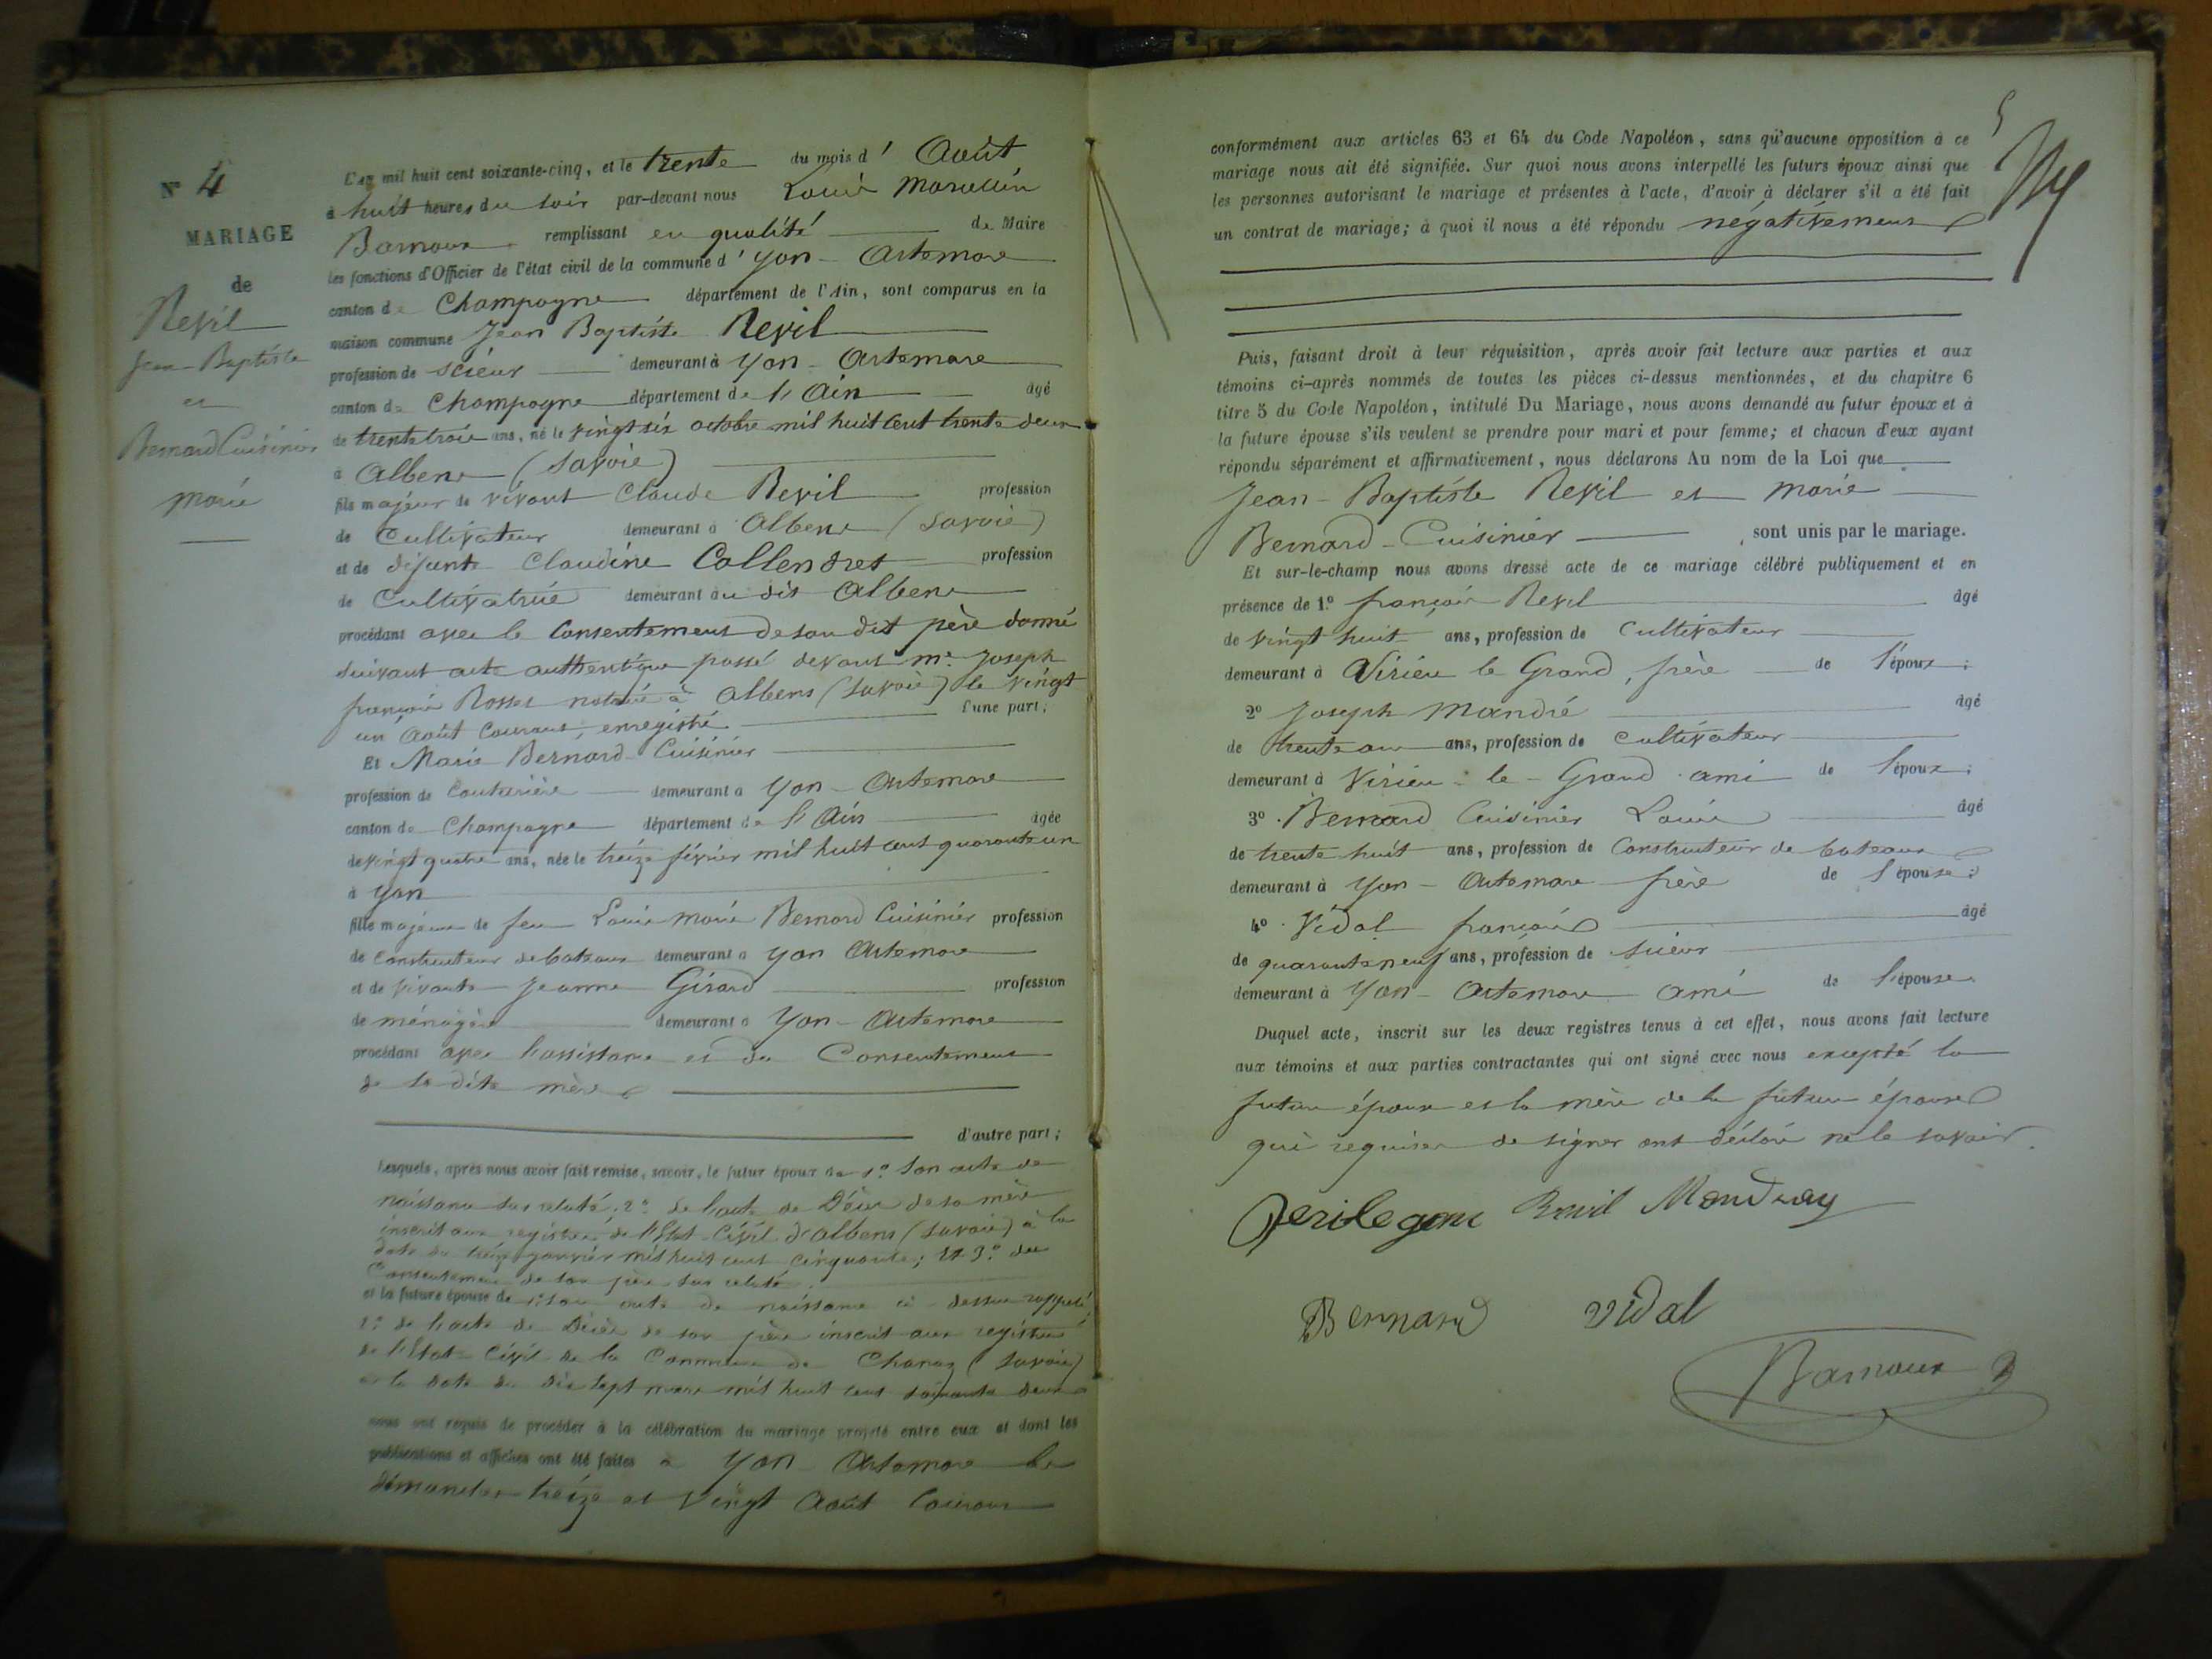 N° 4
MARIAGE
de
Revil
Jean-Baptiste
et
Bernard Cuisinier
Marie
L'an mil huit cent soixante-cinq, et le trente du mois d'Août
à huit heures du soir par-devant nous Louis Marcellin
Barnoux remplissant en qualité de Maire
les fonctions d'Officier de l'état civil de la commune d'Yon-Artemare
canton de Champagne département de l'Ain, sont comparus en la
maison commune Jean Baptiste Revil
profession de scieur demeurant à Yon-Artemare
canton de Champagne département de l'Ain âgé
de trente trois ans, né le vingt six octobre mil huit cent trente deux
à Albens (Savoie)
fils majeur de vivant Claude Revil profession
de Cultivateur demeurant à Albens (Savoie)
et de défunte Claudine Collendret profession
de Cultivatrice demeurant au dit Albens
procédant avec le Consentement de son dit père donné
suivant acte authentique passé devant Me Joseph
françois Rosset notaire à Albens (Savoie) le vingt
un Août Courant, enregistré d'une part;
Et Marie Bernard-Cuisinier
profession de Couturière demeurant à Yon-Artemare
canton de Champagne département de l'Ain âgée
de vingt quatre ans, née le treize février mil huit cent quarante un
à Yon
fille majeure de feu Louis Marie Bernard Cuisinier profession
de Constructeur de bateaux demeurant à Yon Artemare
et de vivante Jeanne Girard profession
de ménagère demeurant à Yon-Artemare
procédant avec l'assistance et du Consentement
de sa dite mère
d'autre part;
Lesquels, après nous avoir fait remise, savoir, le futur époux de 1° son acte de
naissance sus relaté, 2° de l'acte de Décès de sa mère
inscrit aux registres de l'Etat-Civil d'Albens (Savoie) à la
date du treize janvier mil huit cent cinquante; et 3° du
Consentement de son père sus relaté
et la future épouse de 1° son acte de naissance ci-dessus rappelé,
2° de l'acte de Décès de son père inscrit aux registres
de l'Etat-Civil de la Commune de Chanaz (Savoie)
à la date du dix sept mars mil huit cent soixante deux
nous ont requis de procéder à la célébration du mariage projeté entre eux et dont les
publications et affiches ont été faites à Yon Artemare les
dimanches treize et vingt Août Courant
conformément aux articles 63 et 64 du Code Napoléon, sans qu'aucune opposition à ce
mariage nous ait été signifiée. Sur quoi nous avons interpellé les futurs époux ainsi que
les personnes autorisant le mariage et présentes à l'acte, d'avoir à déclarer s'il a été fait
un contrat de mariage; à quoi il nous a été répondu négativement
Puis, faisant droit à leur réquisition, après avoir fait lecture aux parties et aux
témoins ci-après nommés de toutes les pièces ci-dessus mentionnées, et du chapitre 6
titre 5 du Code Napoléon, intitulé Du Mariage, nous avons demandé au futur époux et à
la future épouse s'ils veulent se prendre pour mari et pour femme; et chacun d'eux ayant
répondu séparément et affirmativement, nous déclarons Au nom de la Loi que
Jean-Baptiste Revil et Marie
Bernard-Cuisinier sont unis par le mariage.
Et sur-le-champ nous avons dressé acte de ce mariage célébré publiquement et en
présence de 1° françois Revil âgé
de vingt huit ans, profession de Cultivateur
demeurant à Virieu le Grand, frère de l'époux;
2° Joseph Mandré âgé
de trente ans, profession de Cultivateur
demeurant à Virieu-le-Grand ami de l'époux;
3° Bernard Cuisinier Louis âgé
de trente huit ans, profession de Constructeur de bateaux
demeurant à Yon-Artemare frère de l'épouse;
4° Vidal françois âgé
de quarante neuf ans, profession de scieur
demeurant à Yon-Artemare ami de l'épouse
Duquel acte, inscrit sur les deux registres tenus à cet effet, nous avons fait lecture
aux témoins et aux parties contractantes qui ont signé avec nous excepté la
future épouse et la mère de la future épouse
qui requises de signer ont déclaré ne le savoir.
Revil Mandray
Bernard Vidal
Barnoux